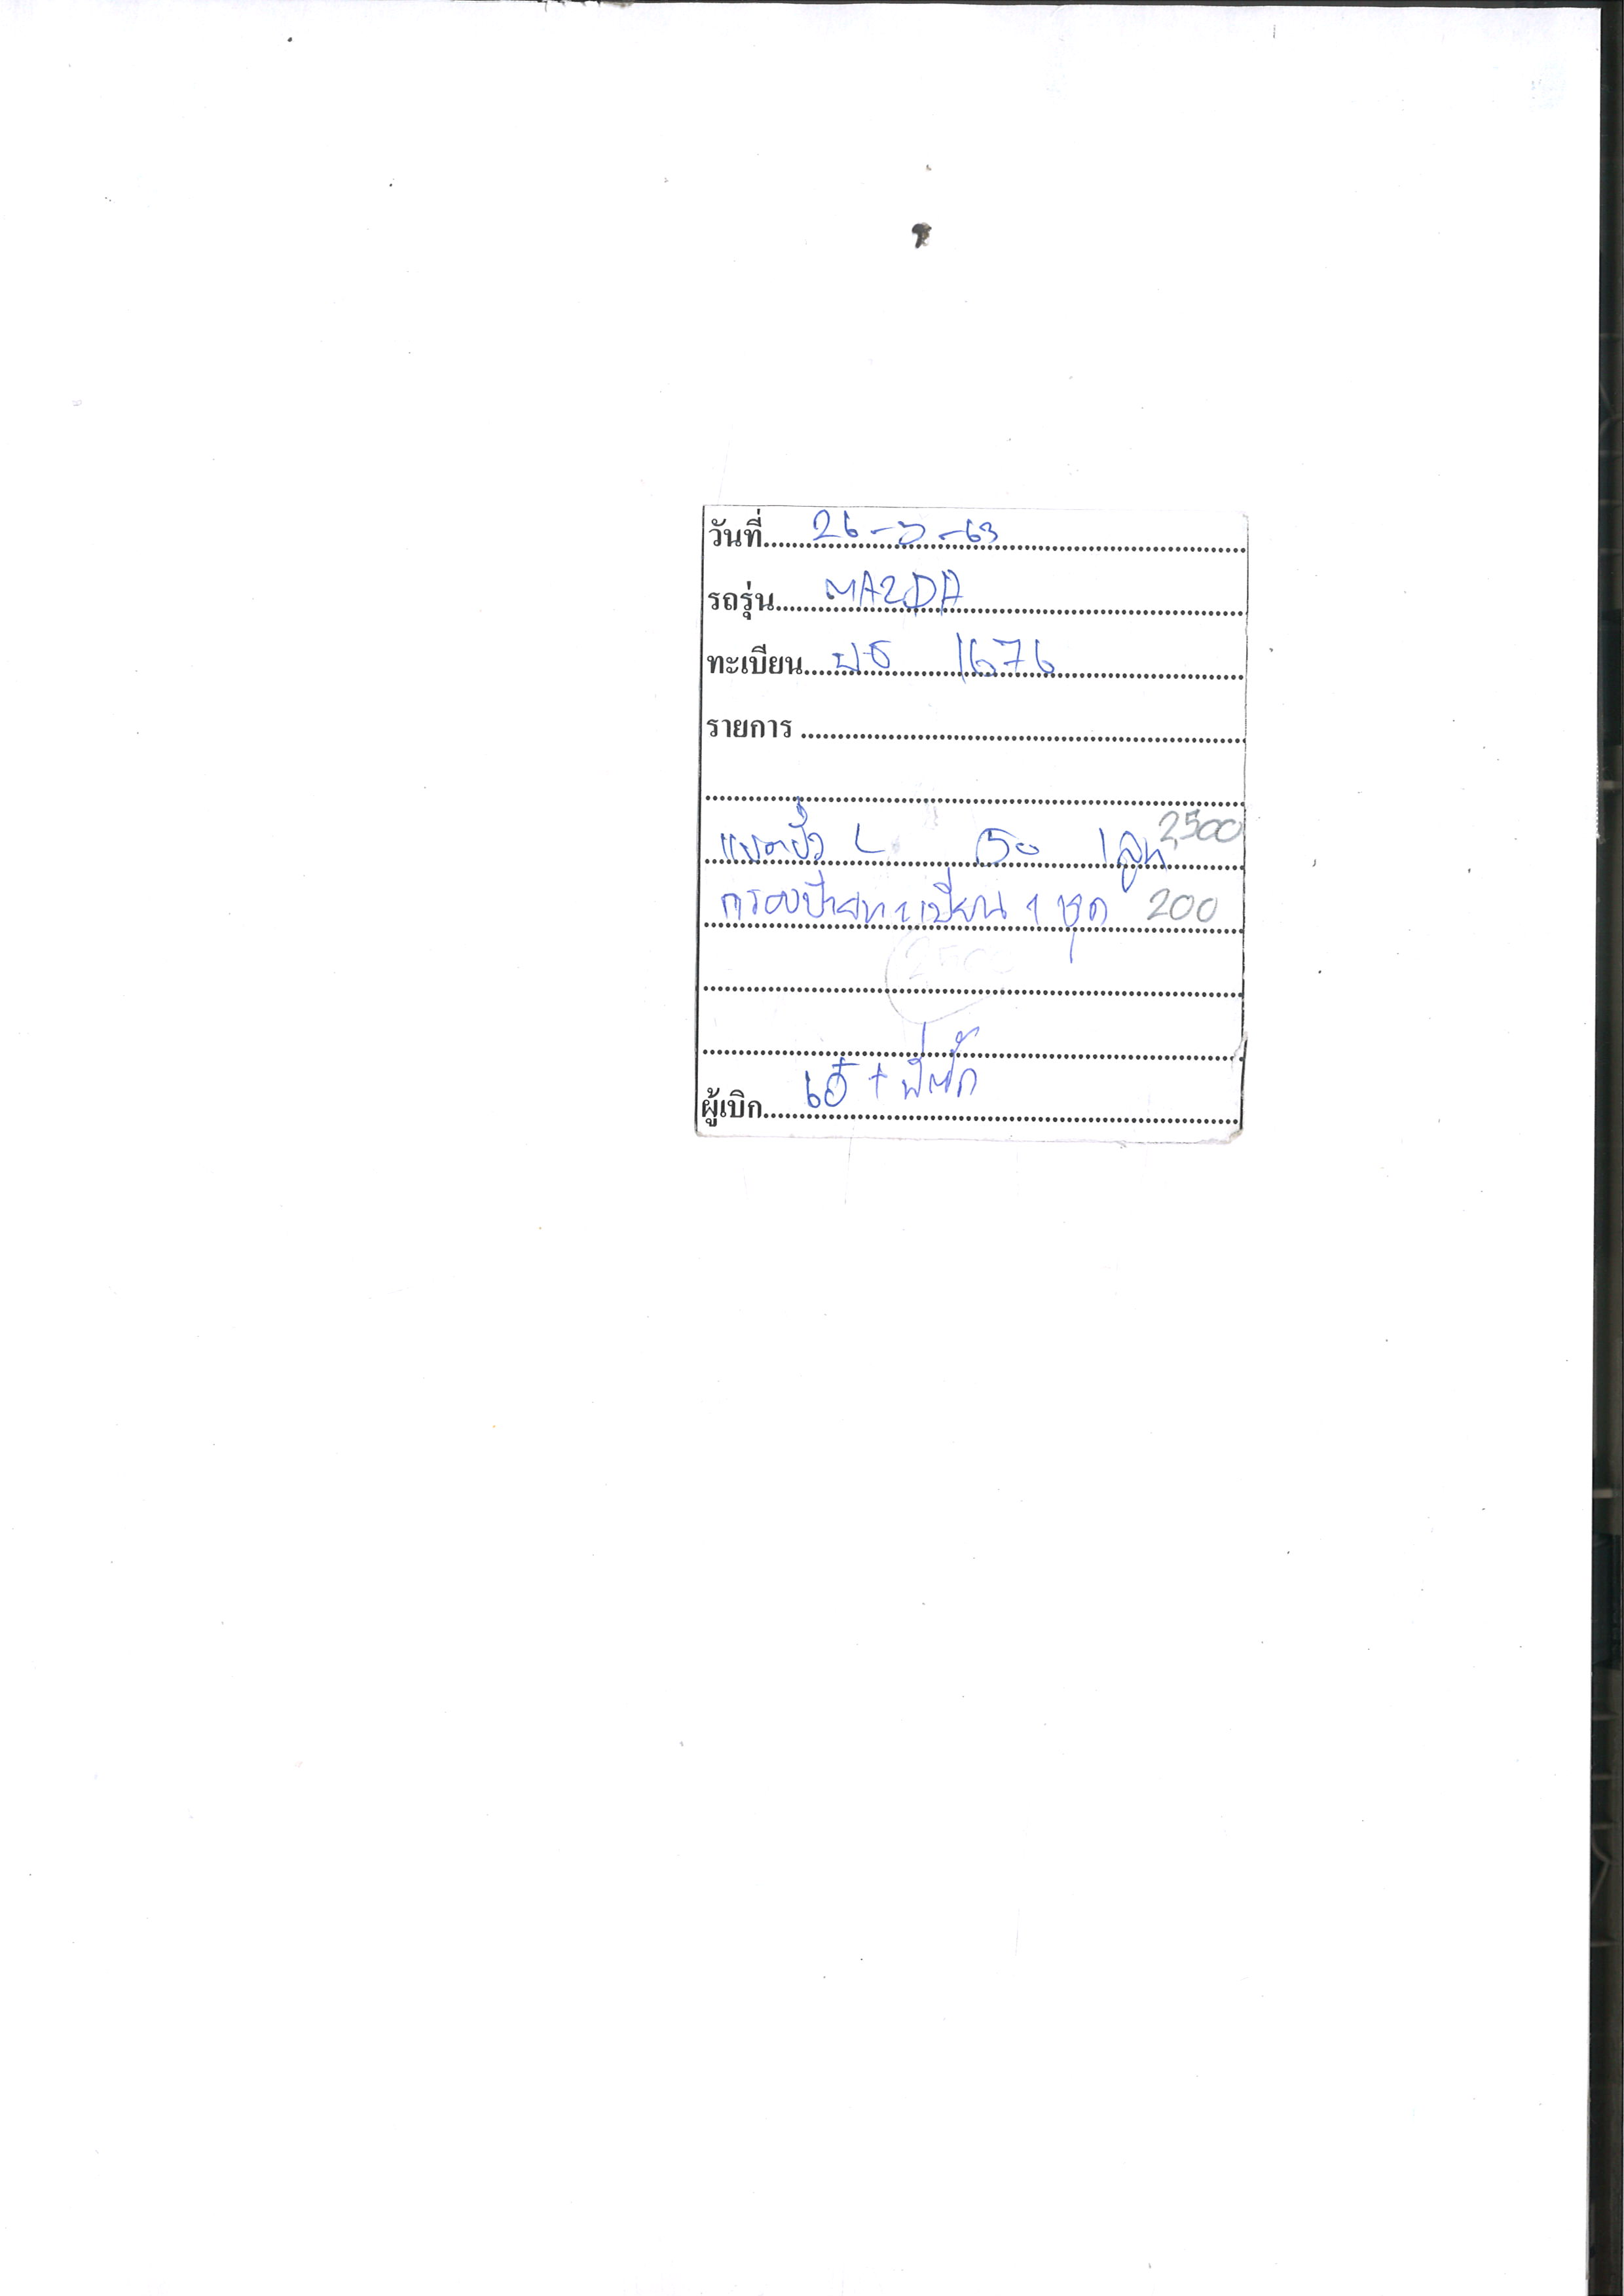 วันที่ 26-7-63
รถรุ่น MAZDA
ทะเบียน 1676
รายการ
แบตตมั่ว L 50 1ลูก 2,500
กรอบป้ายทะเบียน 1 ชุด 200
2500
ผู้เบิก เอ๋ + พี่